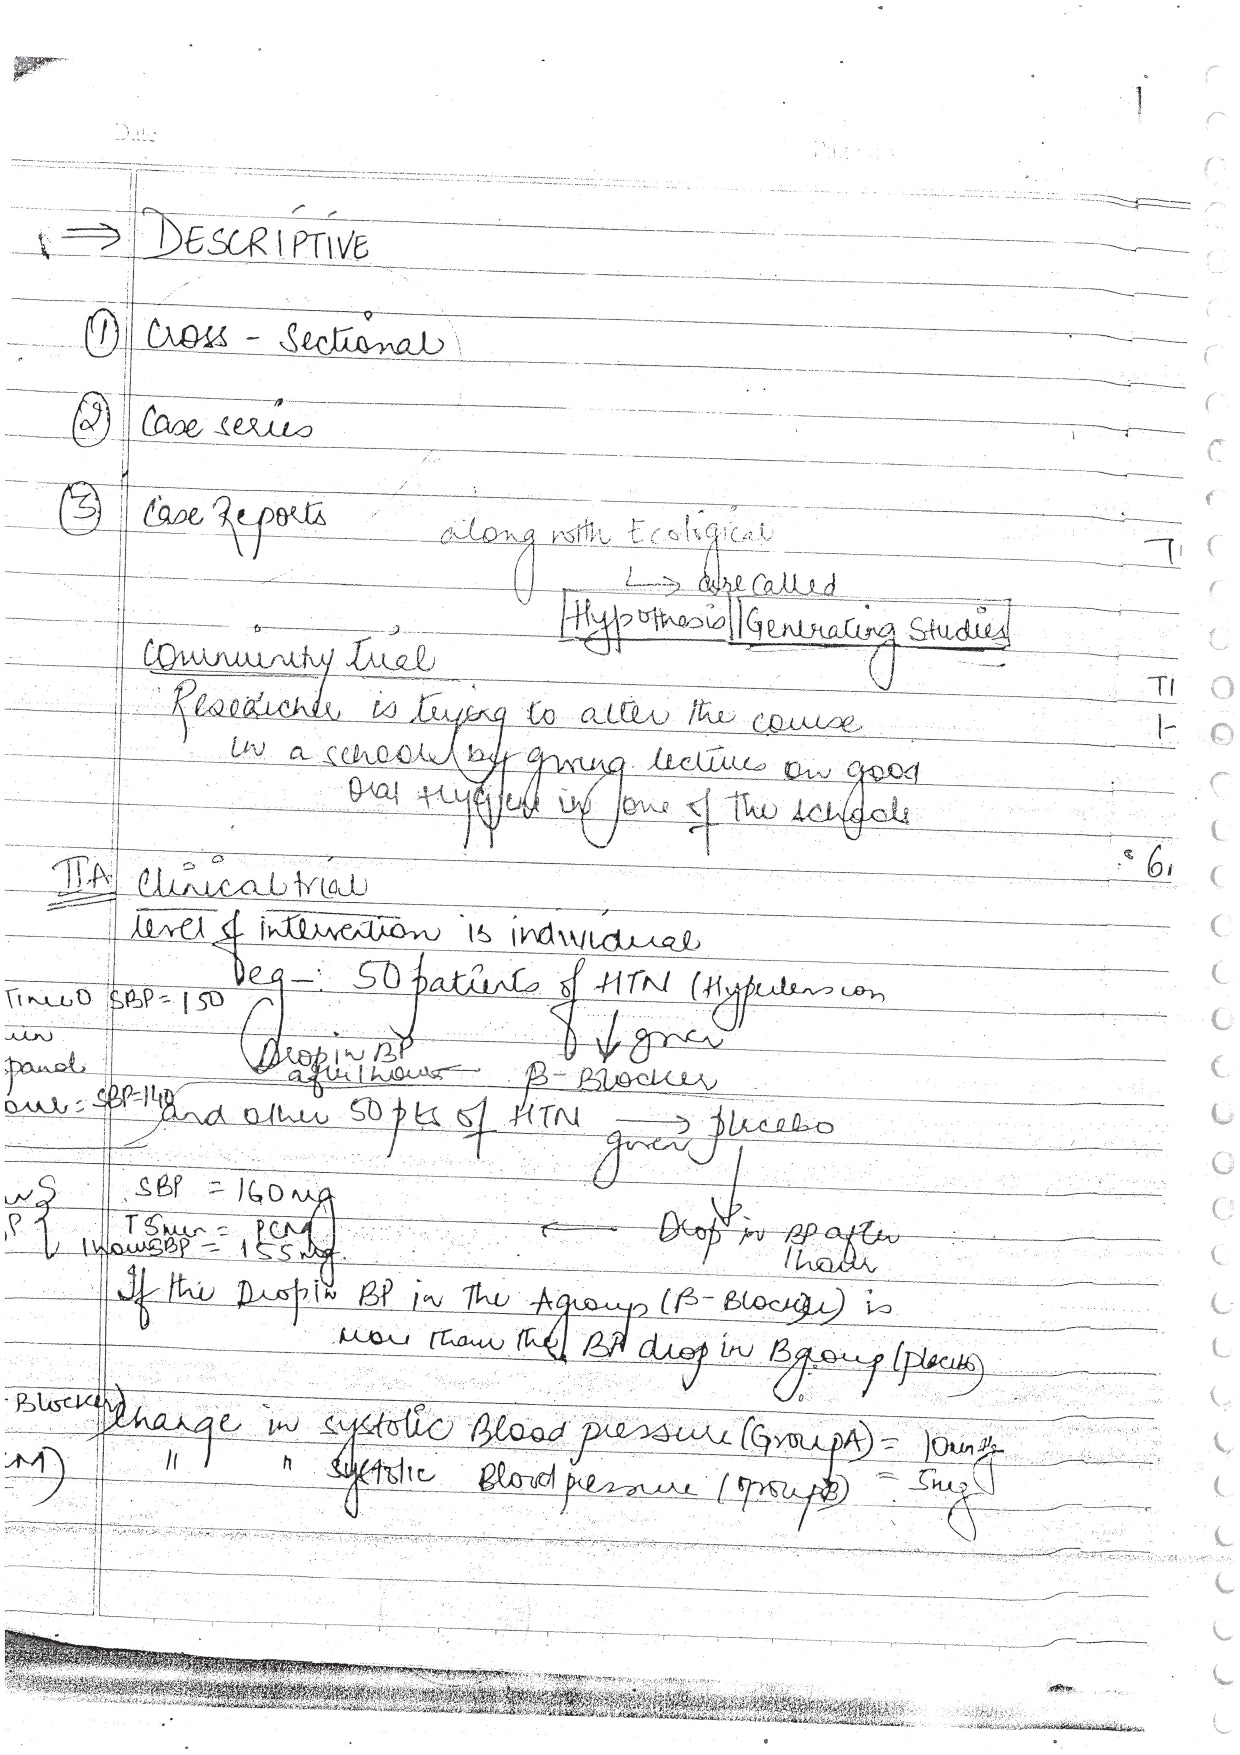 1
⇒ DESCRIPTIVE
① Cross - Sectional
② Case series
③ Case Reports along with Ecological
↳ are called
Hypothesis Generating Studies
Community trial
Researcher is trying to alter the course
in a school by giving lectures on good
Oral Hygiene in one of the schools
6
IIA Clinical trial
level of intervention is individual
eg -: 50 patients of HTN (Hypertension
Time 0 SBP = 150
↓ given
Drop in BP
after 1 hour B-Blocker
SBP=140
and other 50 pts of HTN → placebo
given
SBP = 160mg
PCM
1hour SBP = 155mg
← Drop in BP after
1hour
If the Drop in BP in the A group (B-Blocker) is
more than the BP drop in B group (placebo)
Blocker)
change in systolic Blood pressure (Group A) = 10mmHg
M) " " systolic Blood pressure (group B) = 5mg